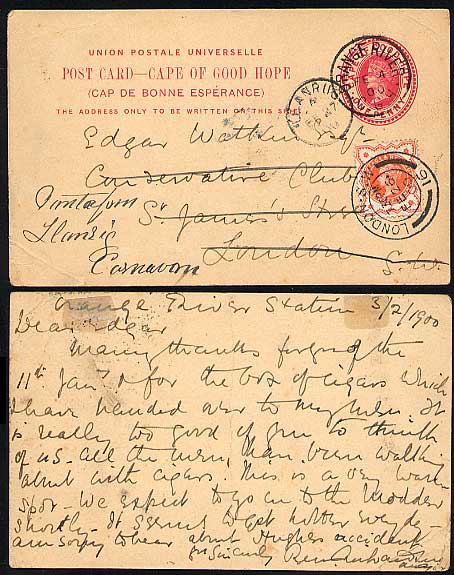 UNION POSTALE UNIVERSELLE
POST CARD—CAPE OF GOOD HOPE
(CAP DE BONNE ESPÉRANCE)
THE ADDRESS ONLY TO BE WRITTEN ON THIS SIDE
ORANGE RIVER
FE 4
00
ONE PENNY
LLANRUG
LONDON
91
Edgar Watkin
Conservative Club
St. James's Street
London
S.W.
Llanrug
Carnarvon
Orange River Station 3/2/1900
Dear Edgar
Many thanks for yrs of the
11th Jany & for the box of cigars which
I have handed over to my men. It
is really too good of you to think
of us. All the men have been walking
about with cigars. This is a very warm
spot - We expect to go on to the Modder
shortly - It seems to get hotter every day
am sorry to hear about Hughes accident
yrs Sincerely